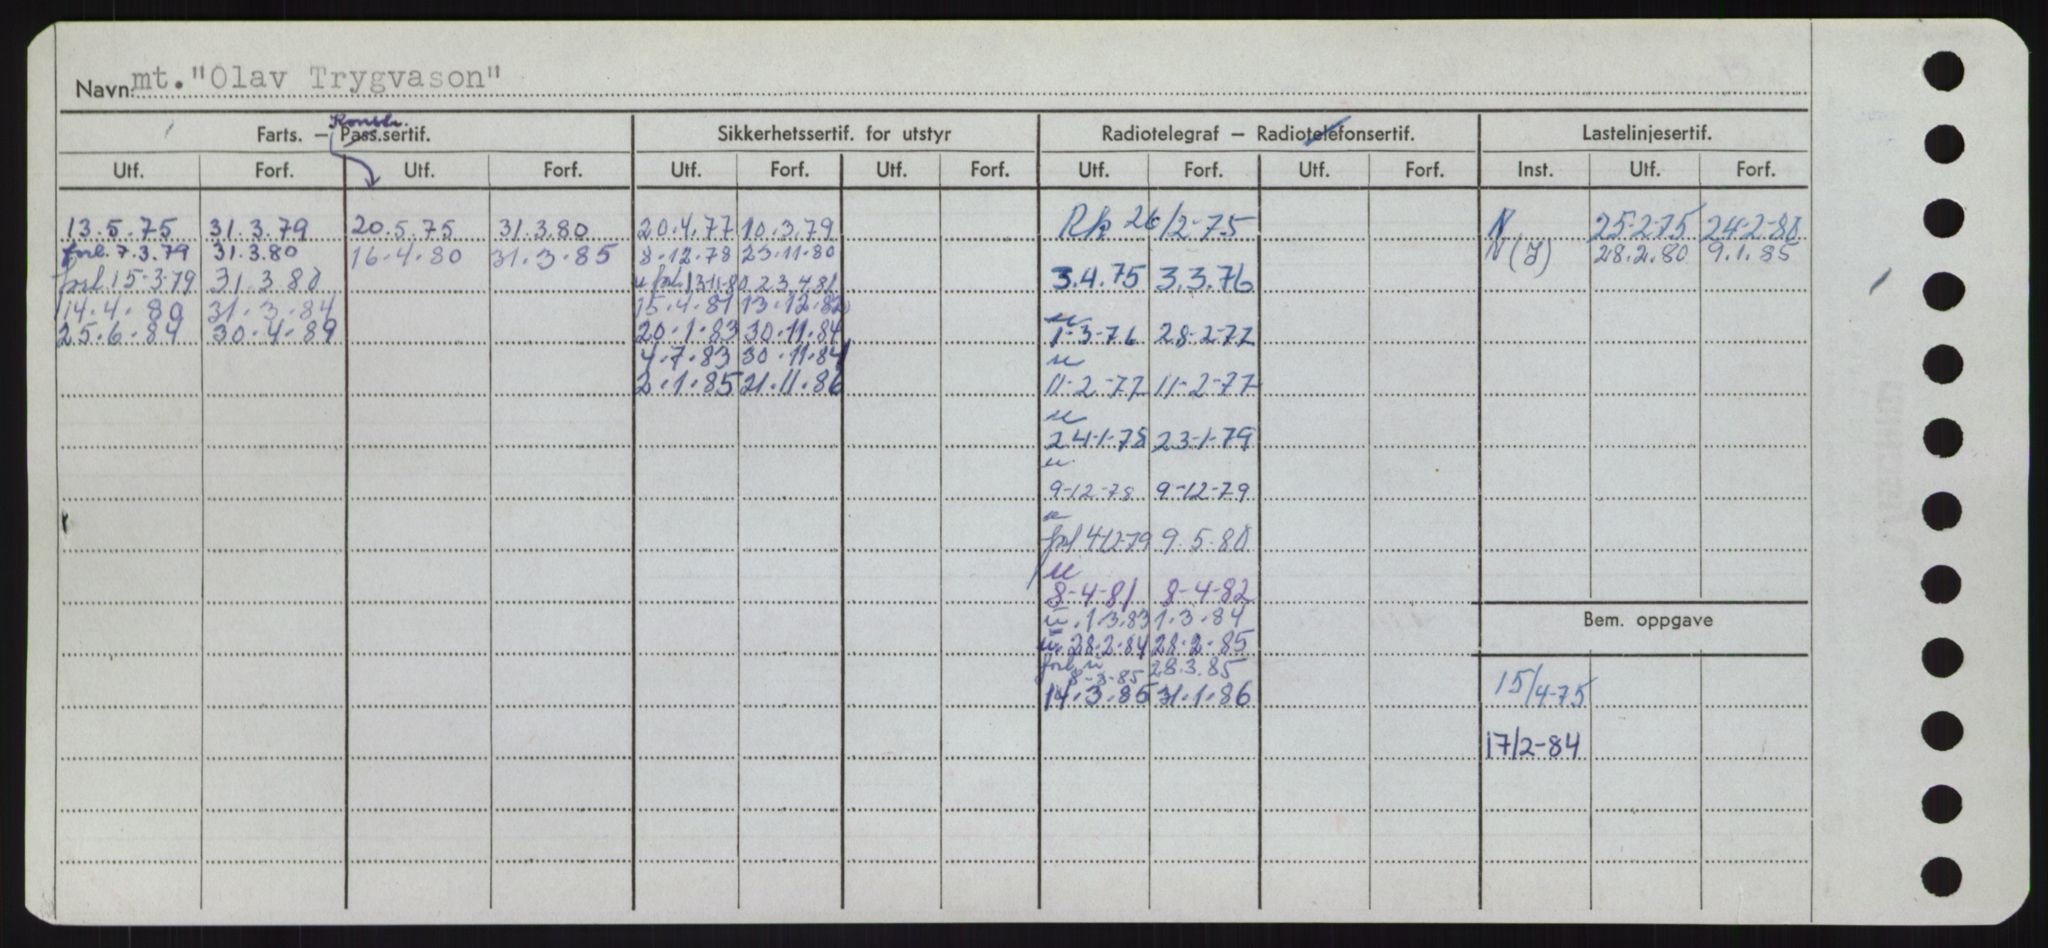 Navn mt. "Olav Trygvason"
Konstr.
Farts. — Pass.sertif. Sikkerhetssertif. for utstyr Radiotelegraf — Radiotelefonsertif. Lastelinjesertif.
Utf. Forf. Utf. Forf. Utf. Forf. Utf. Forf. Utf. Forf. Utf. Forf. Inst. Utf. Forf.
13.5.75 31.3.79 20.5.75 31.3.80 20.4.77 10.3.79 Rk 26/2-75 N 25-2-75 24-2-80
forl. 7.3.79 31.3.80 16.4.80 31.3.85 8.12.78 23.11.80 N(J) 28.2.80 9.1.85
forl 15-3-79 31.3.80 u forl 13-11-80 23.4.81 3.4.75 3.3.76
14.4.80 31.3.84 15.4.81 13.12.82
u
25.6.84 30.4.89 20.1.83 30.11.84 1-3-76 28-2-77
4.7.83 30.11.84 u
2.1.85 21.11.86 11-2-77 11-2-77
u
24-1-78 23-1-79
u
9-12-78 9-12-79
u
forl 4/12-79 9.5-80
u
8-4-81 8-4-82
u. 1.3.83 1.3.84 Bem. oppgave
u. 28.2.84 28.2.85
forl. u 28.3.85
8-3-85 15/4-75
14.3.85 31.1.86
17/2-84